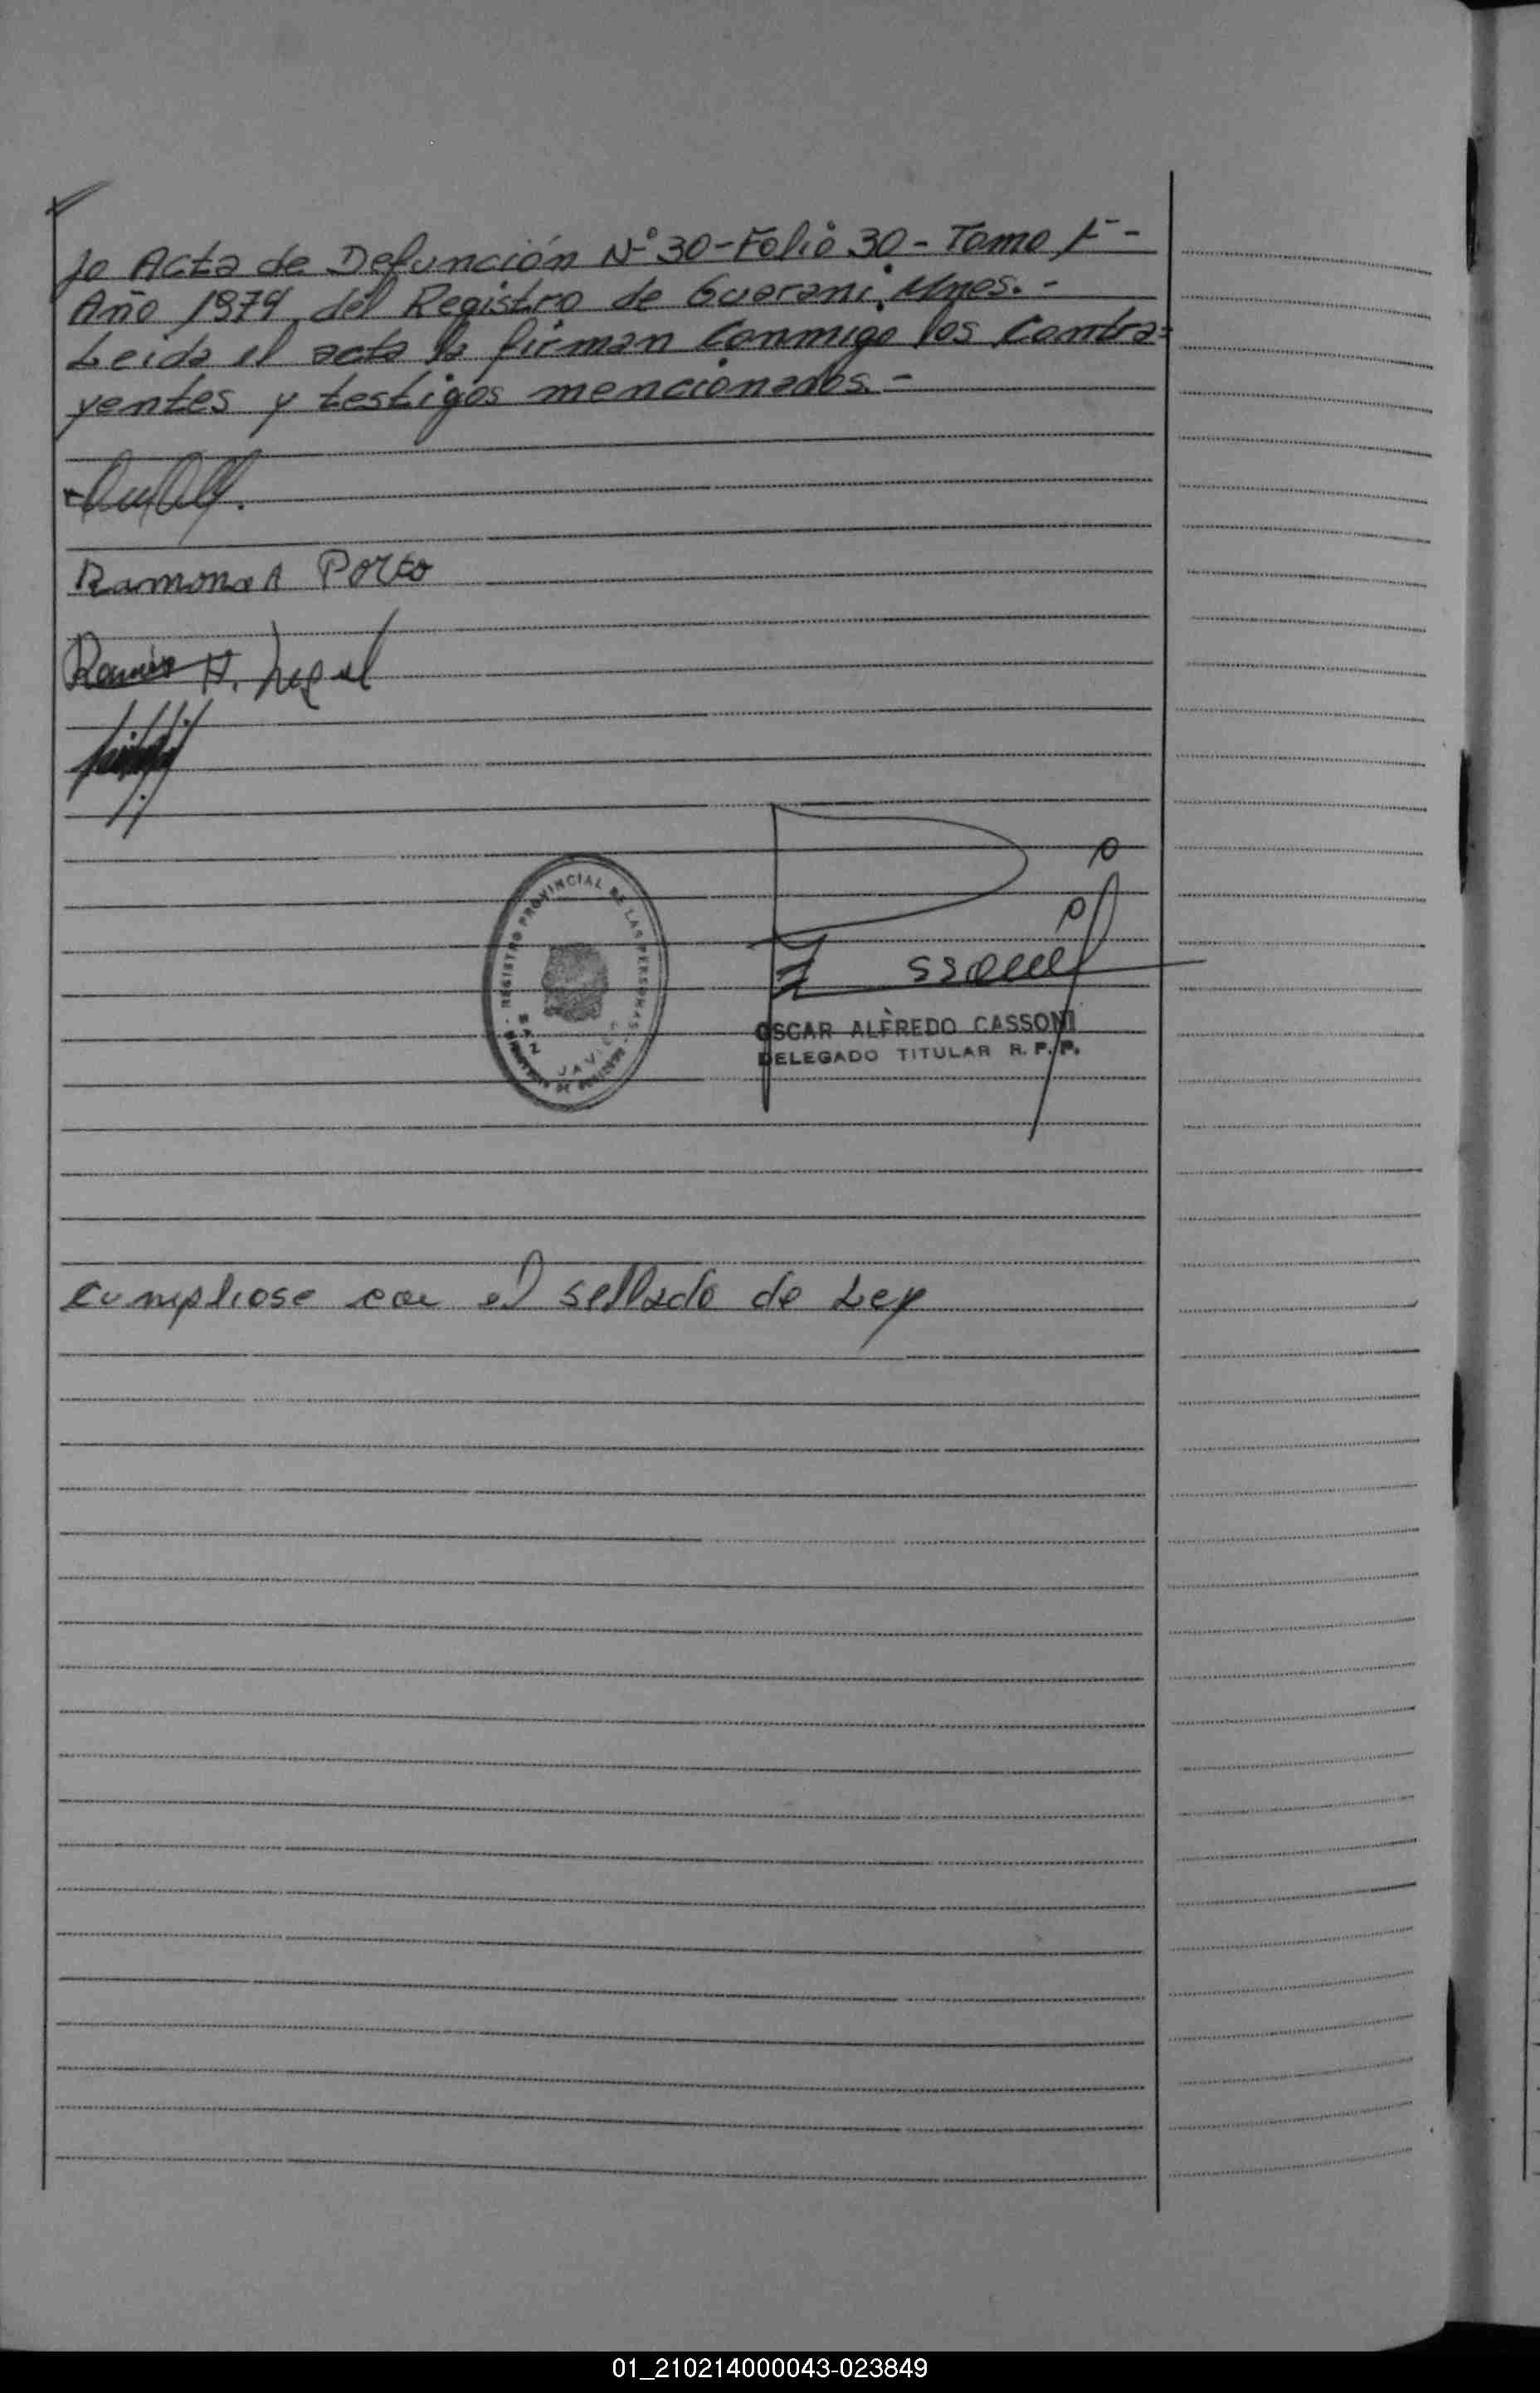 lo Acta de Defunción Nº 30-Folio 30- Tomo 1º-
Año 1974, del Registro de Guarani, Mnes.-
Leida el acta la firman conmigo los Contra-
yentes y testigos mencionados.-
Ramona A Porto
Ramón H.
REGISTRO PROVINCIAL DE LAS PERSONAS
SAN JAVIER
OSCAR ALFREDO CASSONI
DELEGADO TITULAR R. P. P.
Cumpliose con el sellado de Ley
01_210214000043-023849